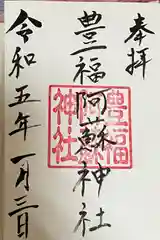 奉拝
豊福阿蘇神社
豊福阿蘇神社
令和五年一月三日